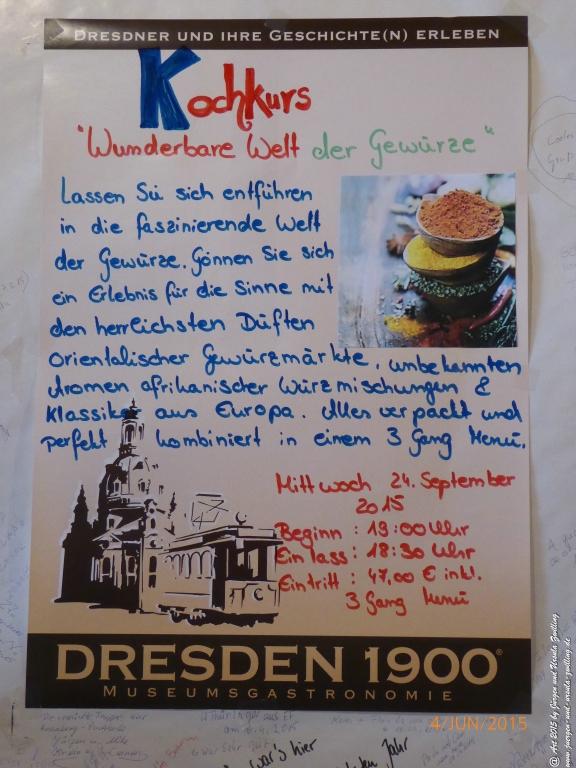 DRESDNER UND IHRE GESCHICHTE(N) ERLEBEN
Kochkurs
"Wunderbare Welt der Gewürze"
Lassen Sie sich entführen
in die faszinierende Welt
der Gewürze. Gönnen Sie sich
ein Erlebnis für die Sinne mit
den herrlichsten Düften
Orientalischer Gewürzmärkte, unbekannten
Aromen afrikanischer Würzmischungen &
Klassiker aus Europa. Alles verpackt und
perfekt kombiniert in einem 3 Gang Menü.
Mittwoch 24. September
2015
Beginn : 19:00 Uhr
Einlass : 18:30 Uhr
Eintritt : 47,00 € inkl.
3 Gang Menü
47
DRESDEN 1900®
MUSEUMSGASTRONOMIE
4/JUN/2015
war's hier
Jahr
@ Art 2015 by Jürgen und Ursula Zwilling
www.juergen-und-ursula-zwilling.de